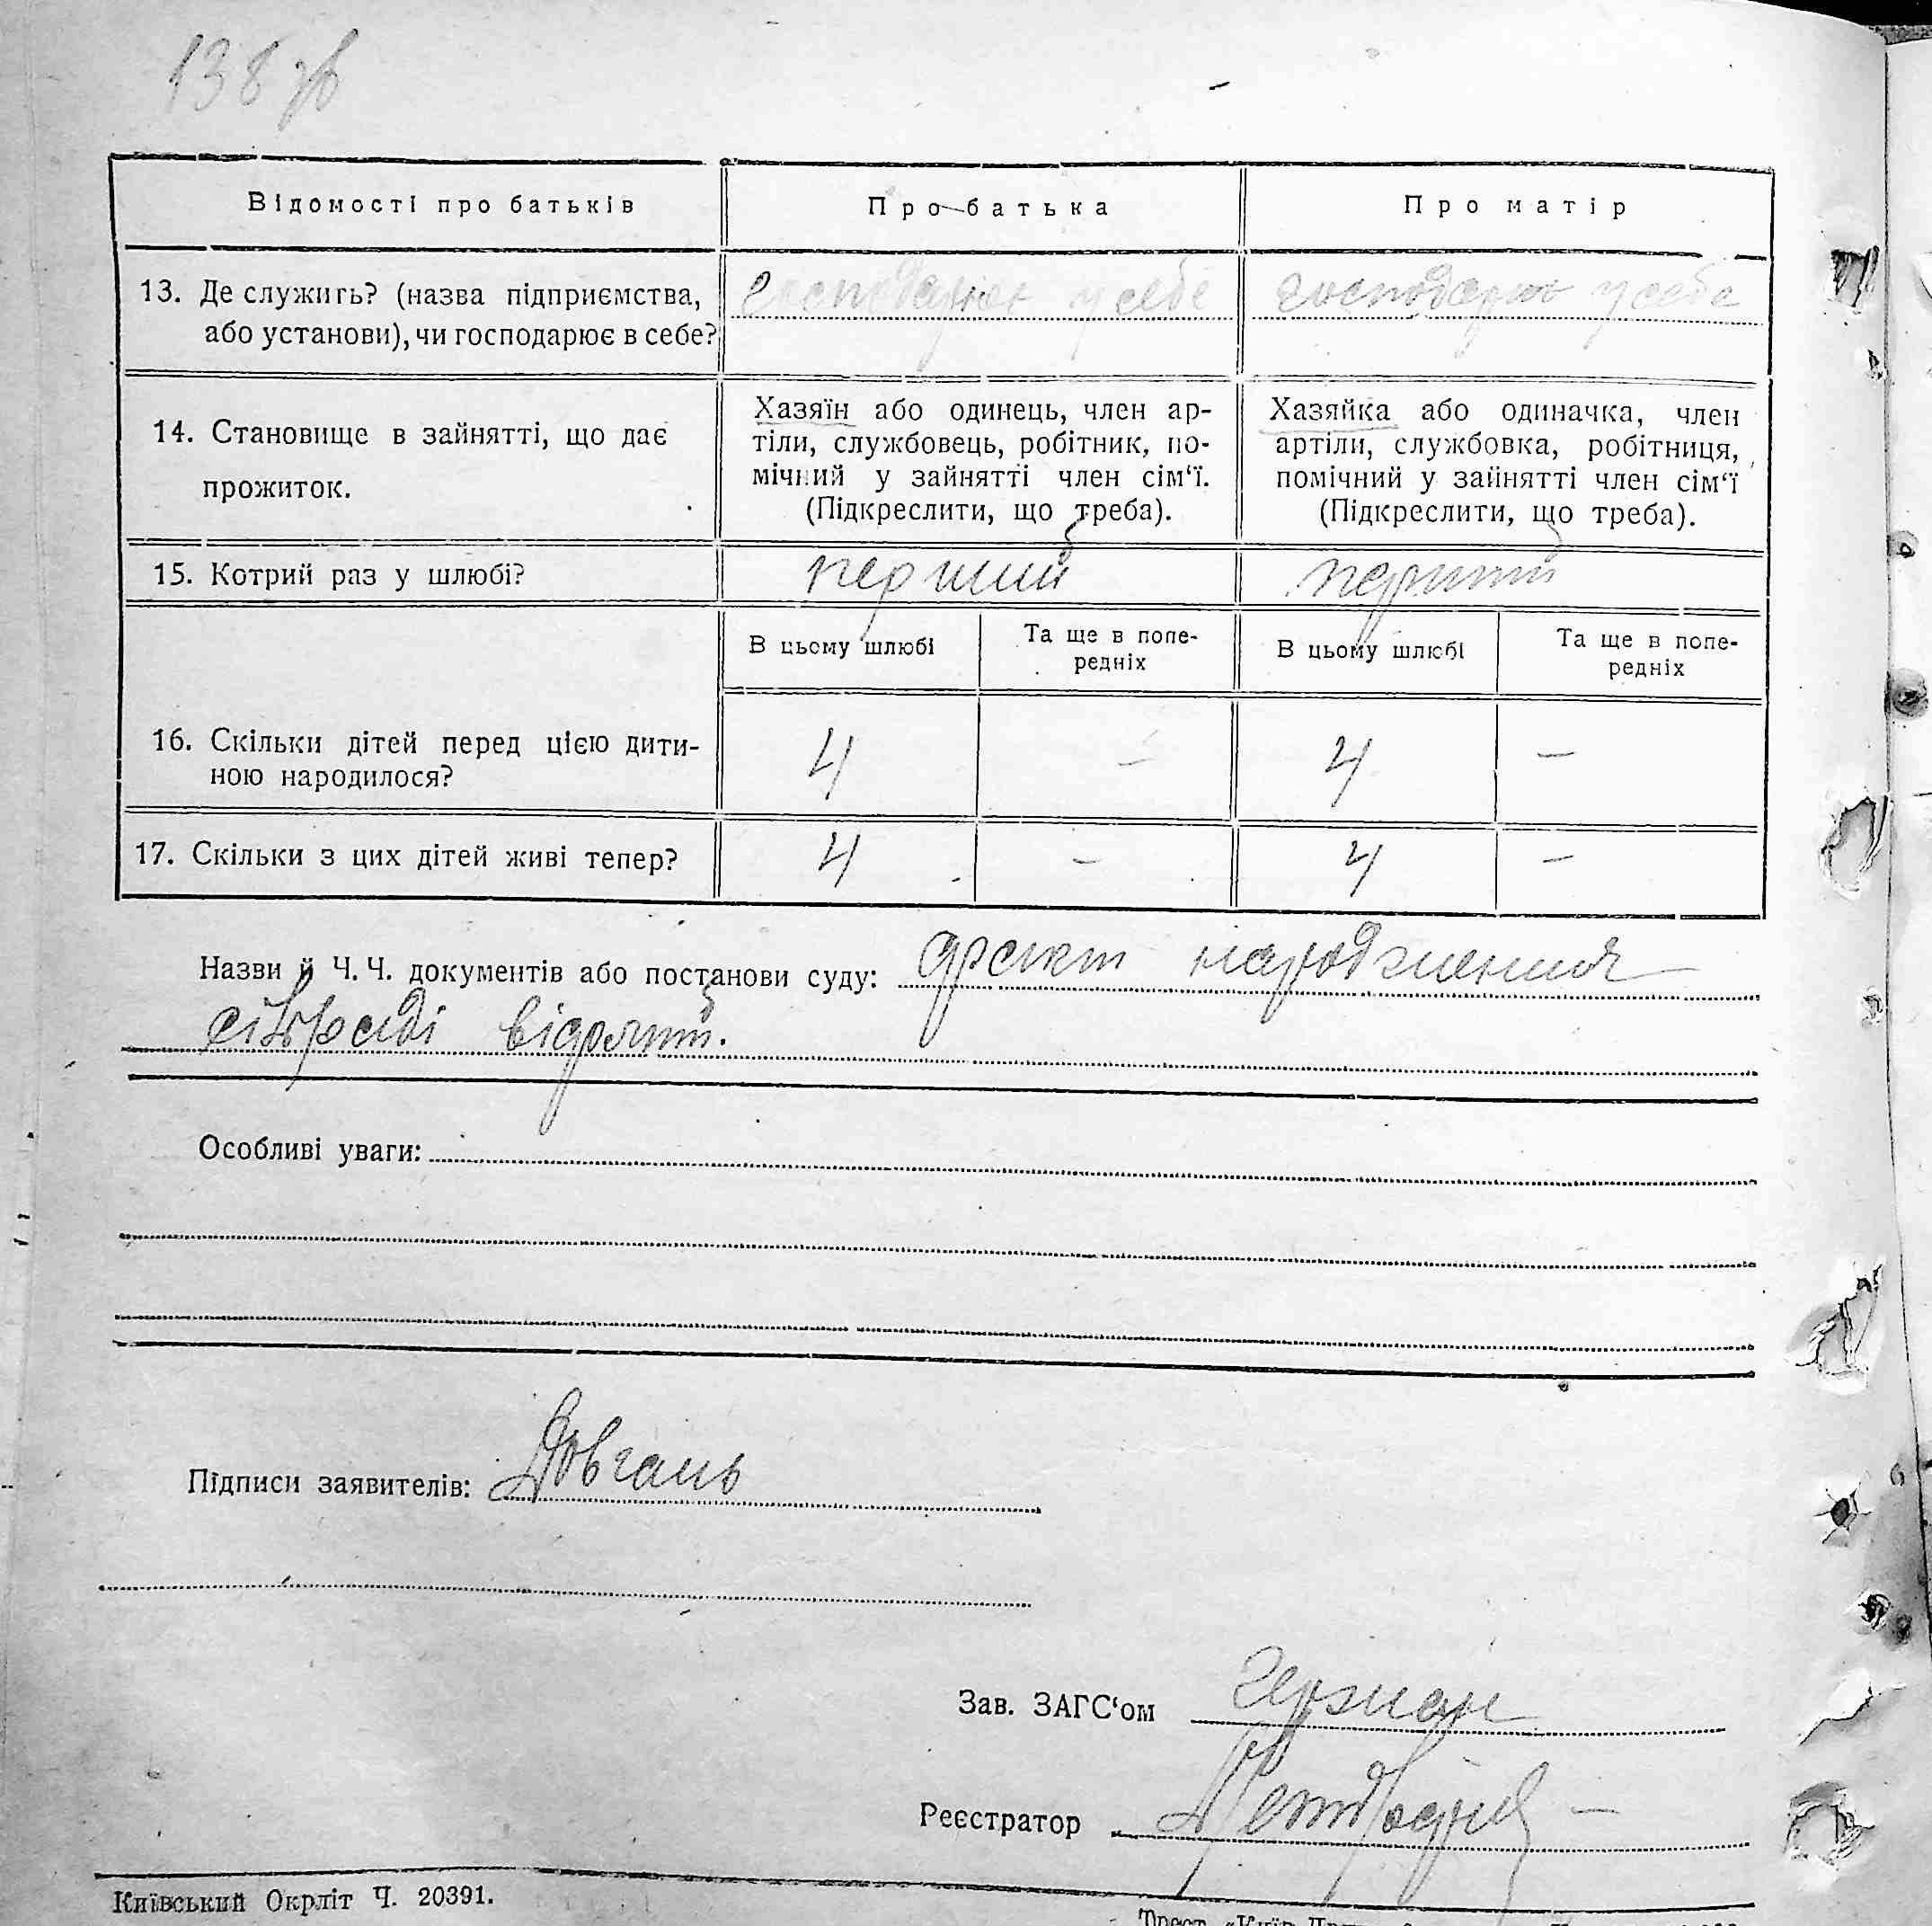 138 зв
Відомості про батьків
Про батька
Про матір
13. Де служить? (назва підприємства,
або установи), чи господарює в себе?
господарює у себе
господарює у себе
14. Становище в зайнятті, що дає
прожиток.
Хазяїн або одинець, член ар-
тіли, службовець, робітник, по-
мічний у зайнятті член сім‘ї.
(Підкреслити, що треба).
Хазяйка або одиначка, член
артіли, службовка, робітниця,
помічний у зайнятті член сім‘ї
(Підкреслити, що треба).
15. Котрий раз у шлюбі?
перший
перший
В цьому шлюбі
Та ще в попе-
редніх
В цьому шлюбі
Та ще в попе-
редніх
16. Скільки дітей перед цією дити-
ною народилося?
4 – 4 –
17. Скільки з цих дітей живі тепер?
4 – 4 –
Назви й Ч. Ч. документів або постанови суду: факт народження
сільраді відомий.
Особливі уваги:
Підписи заявителів: Довгань
Зав. ЗАГС‘ом
Реєстратор
Київський Окрліт Ч. 20391.